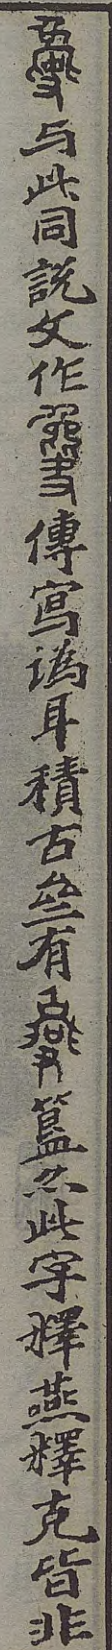 与此同説文作傳寫譌耳積古亝有簠然此字釋燕釋克皆非